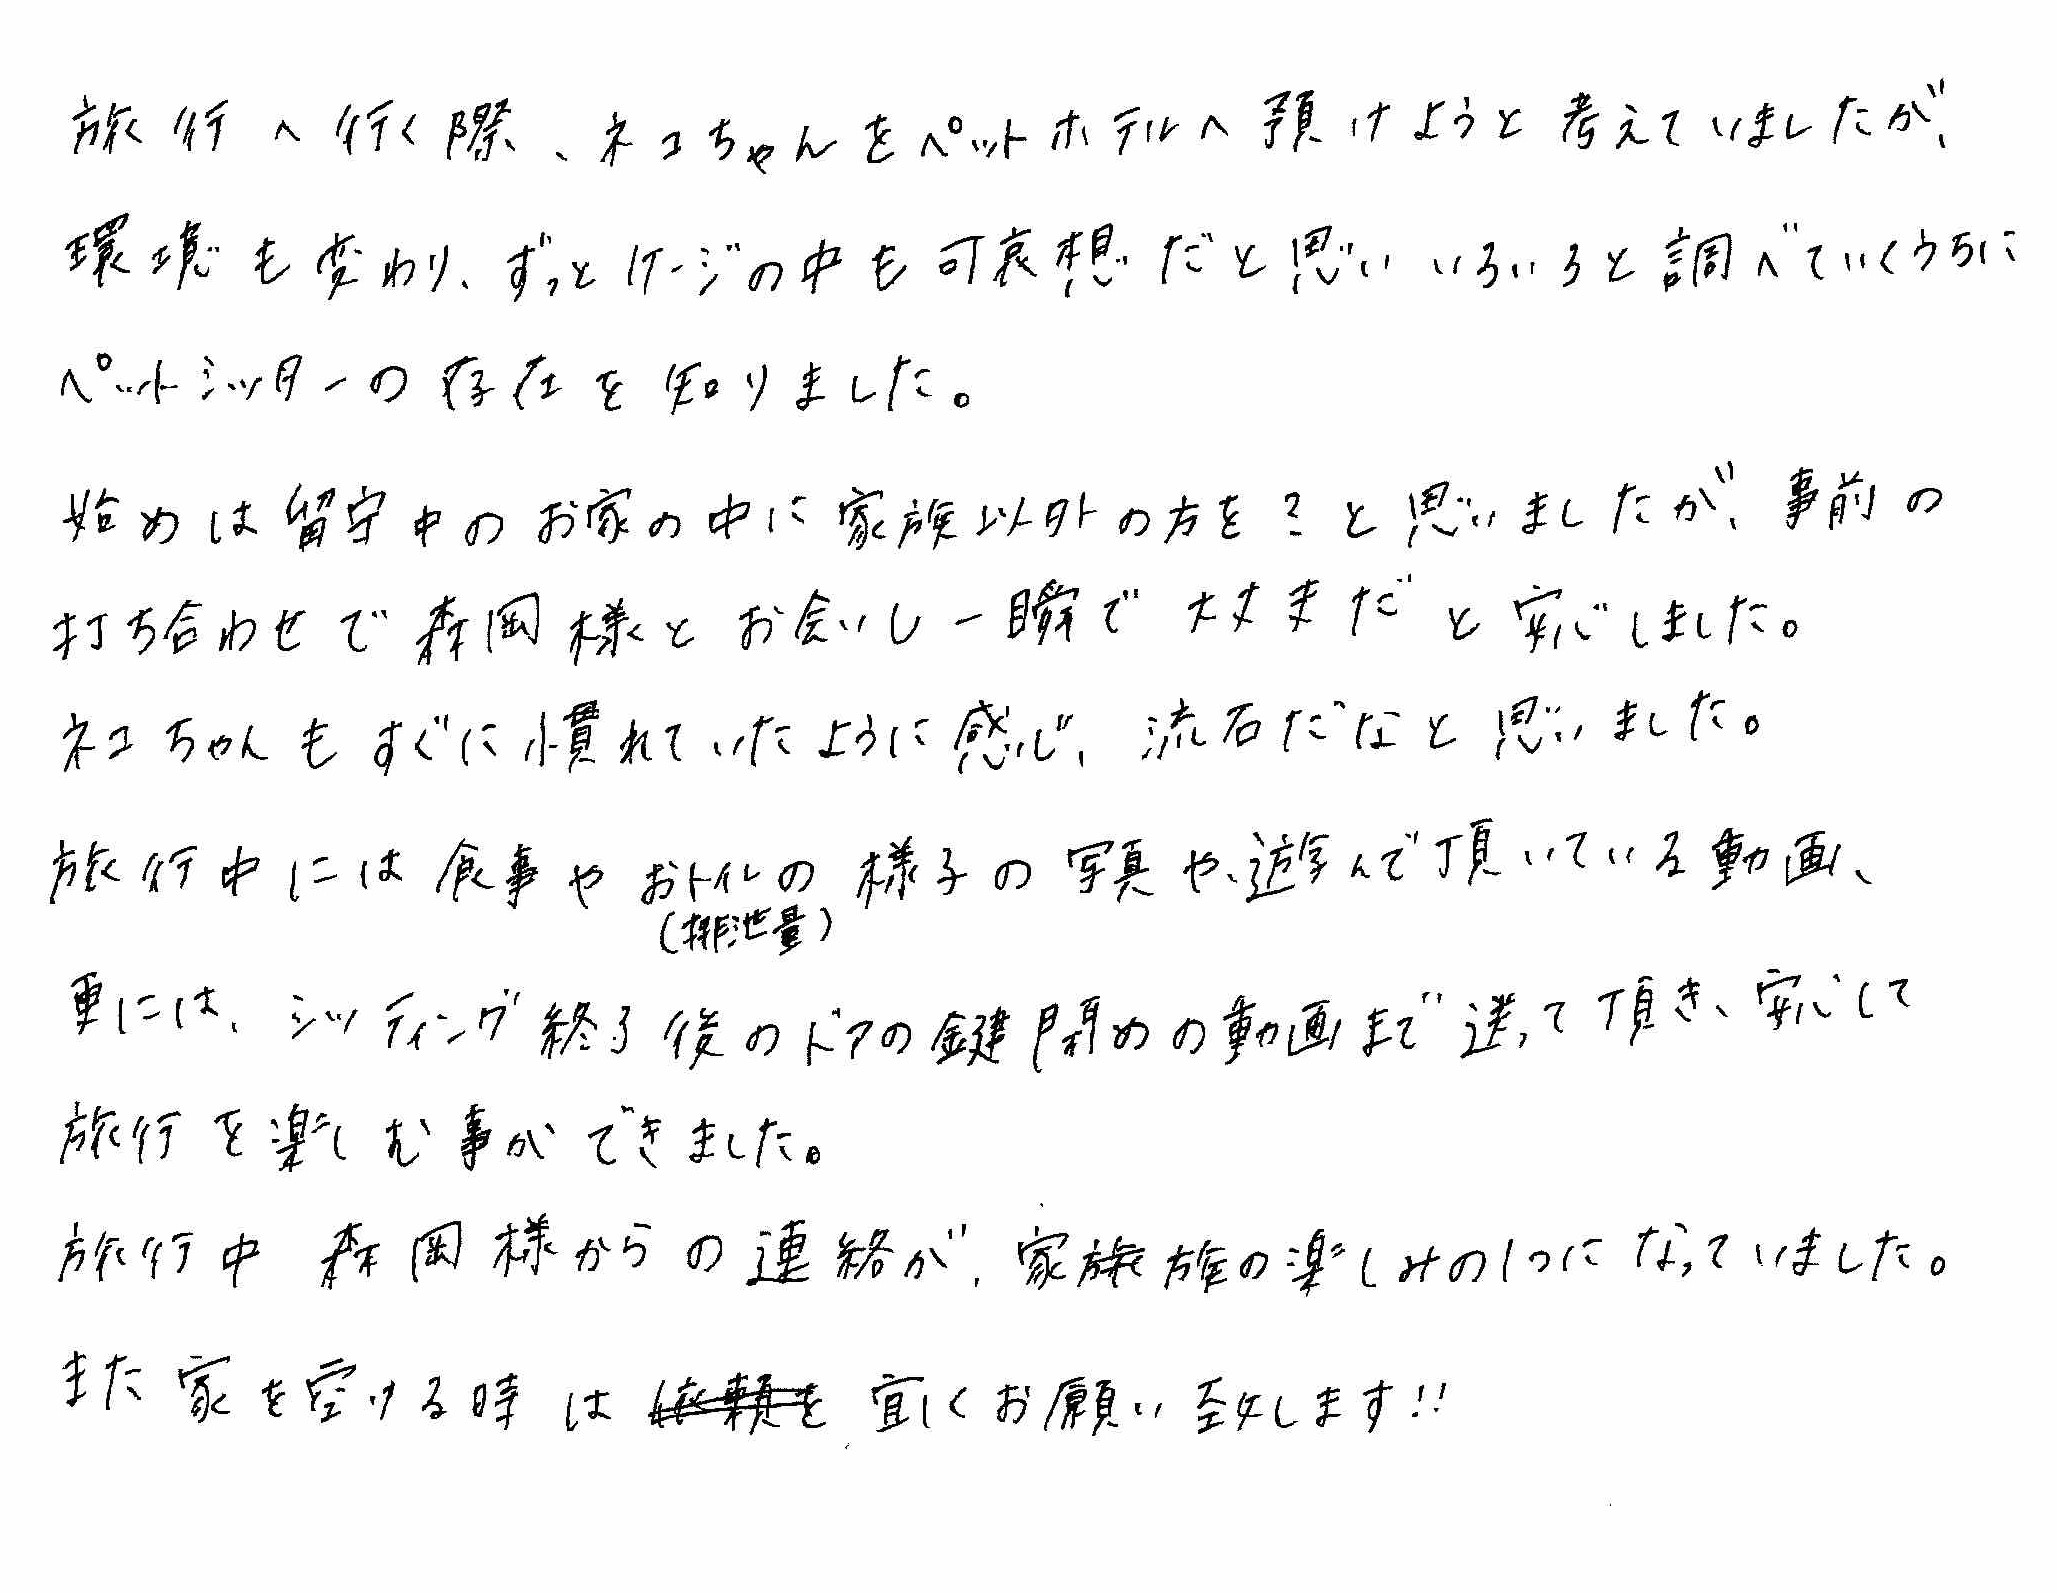 旅行へ行く際、ネコちゃんをペットホテルへ預けようと考えていましたが、
環境も変わり、ずっとケージの中も可哀想だと思いいろいろと調べていくうちに
ペットシッターの存在を知りました。
始めは留守中のお家の中に家族以外の方を?と思いましたが、事前の
打ち合わせで森岡様とお会いし一瞬で大丈夫だと安心しました。
ネコちゃんもすぐに慣れていたように感じ、流石だなと思いました。
旅行中には食事やおトイレの様子の写真や、遊んで頂いている動画、
(排泄量)
更には、シッティング終了後のドアの鍵閉めの動画まで送って頂き、安心して
旅行を楽しむ事ができました。
旅行中 森岡様からの連絡が、家族族の楽しみの1つになっていました。
また家を空ける時は依頼を宜しくお願い致します!!